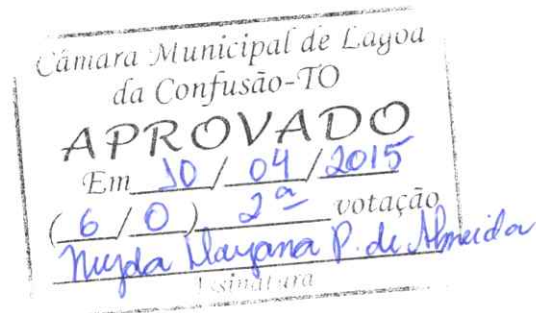 Câmara Municipal de Lagoa
da Confusão-TO
APROVADO
Em 10 / 04 / 2015
( 6 / 0 ) 2ª votação
Dayana P. de Almeida
Assinatura